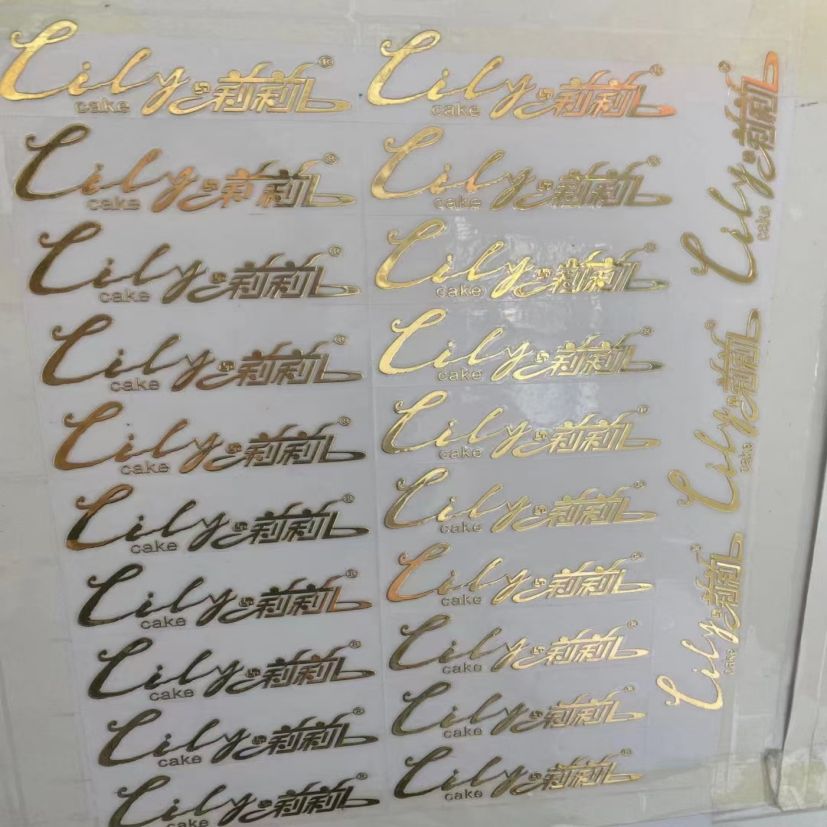 Lily 莉莉®
cake
Lily 莉莉®
cake
Lily 莉莉®
cake
Lily 莉莉®
cake
Lily 莉莉®
cake
Lily 莉莉®
cake
Lily 莉莉®
cake
Lily 莉莉®
cake
Lily 莉莉®
cake
Lily 莉莉®
cake
Lily 莉莉®
cake
Lily 莉莉®
cake
Lily 莉莉®
cake
Lily 莉莉®
cake
Lily 莉莉®
cake
Lily 莉莉®
cake
Lily 莉莉®
cake
Lily 莉莉®
cake
Lily 莉莉®
cake
Lily 莉莉®
cake
Lily 莉莉®
cake
Lily 莉莉®
cake
Lily 莉莉®
cake